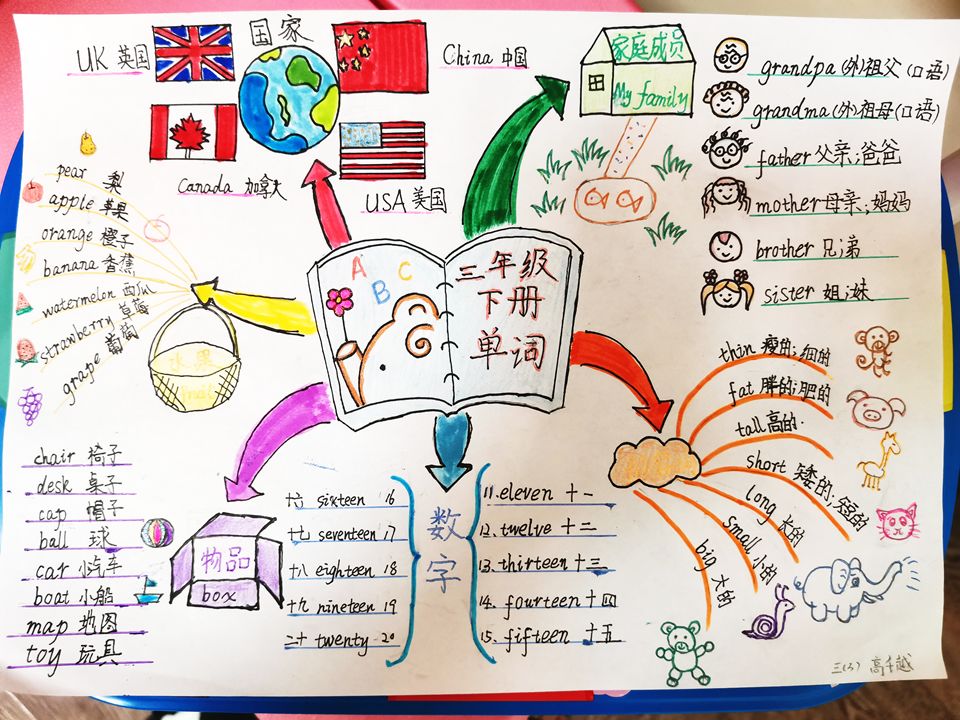 国家
UK 英国
China 中国
Canada 加拿大
USA 美国
家庭成员
My family
grandpa (外)祖父 (口语)
grandma (外)祖母 (口语)
father 父亲;爸爸
mother 母亲;妈妈
brother 兄弟
sister 姐;妹
pear 梨
apple 苹果
orange 橙子
banana 香蕉
watermelon 西瓜
strawberry 草莓
grape 葡萄
水果
A B C
三年级
下册
单词
thin 瘦的;细的
fat 胖的;肥的
tall 高的.
short 矮的;短的
long 长的
small 小的
big 大的
chair 椅子
desk 桌子
cap 帽子
ball 球
car 小汽车
boat 小船
map 地图
toy 玩具
物品
box
十六 sixteen 16
十七 seventeen 17
十八 eighteen 18
十九 nineteen 19
二十 twenty 20
数字
11. eleven 十一
12. twelve 十二
13. thirteen 十三
14. fourteen 十四
15. fifteen 十五
三(3) 高千越